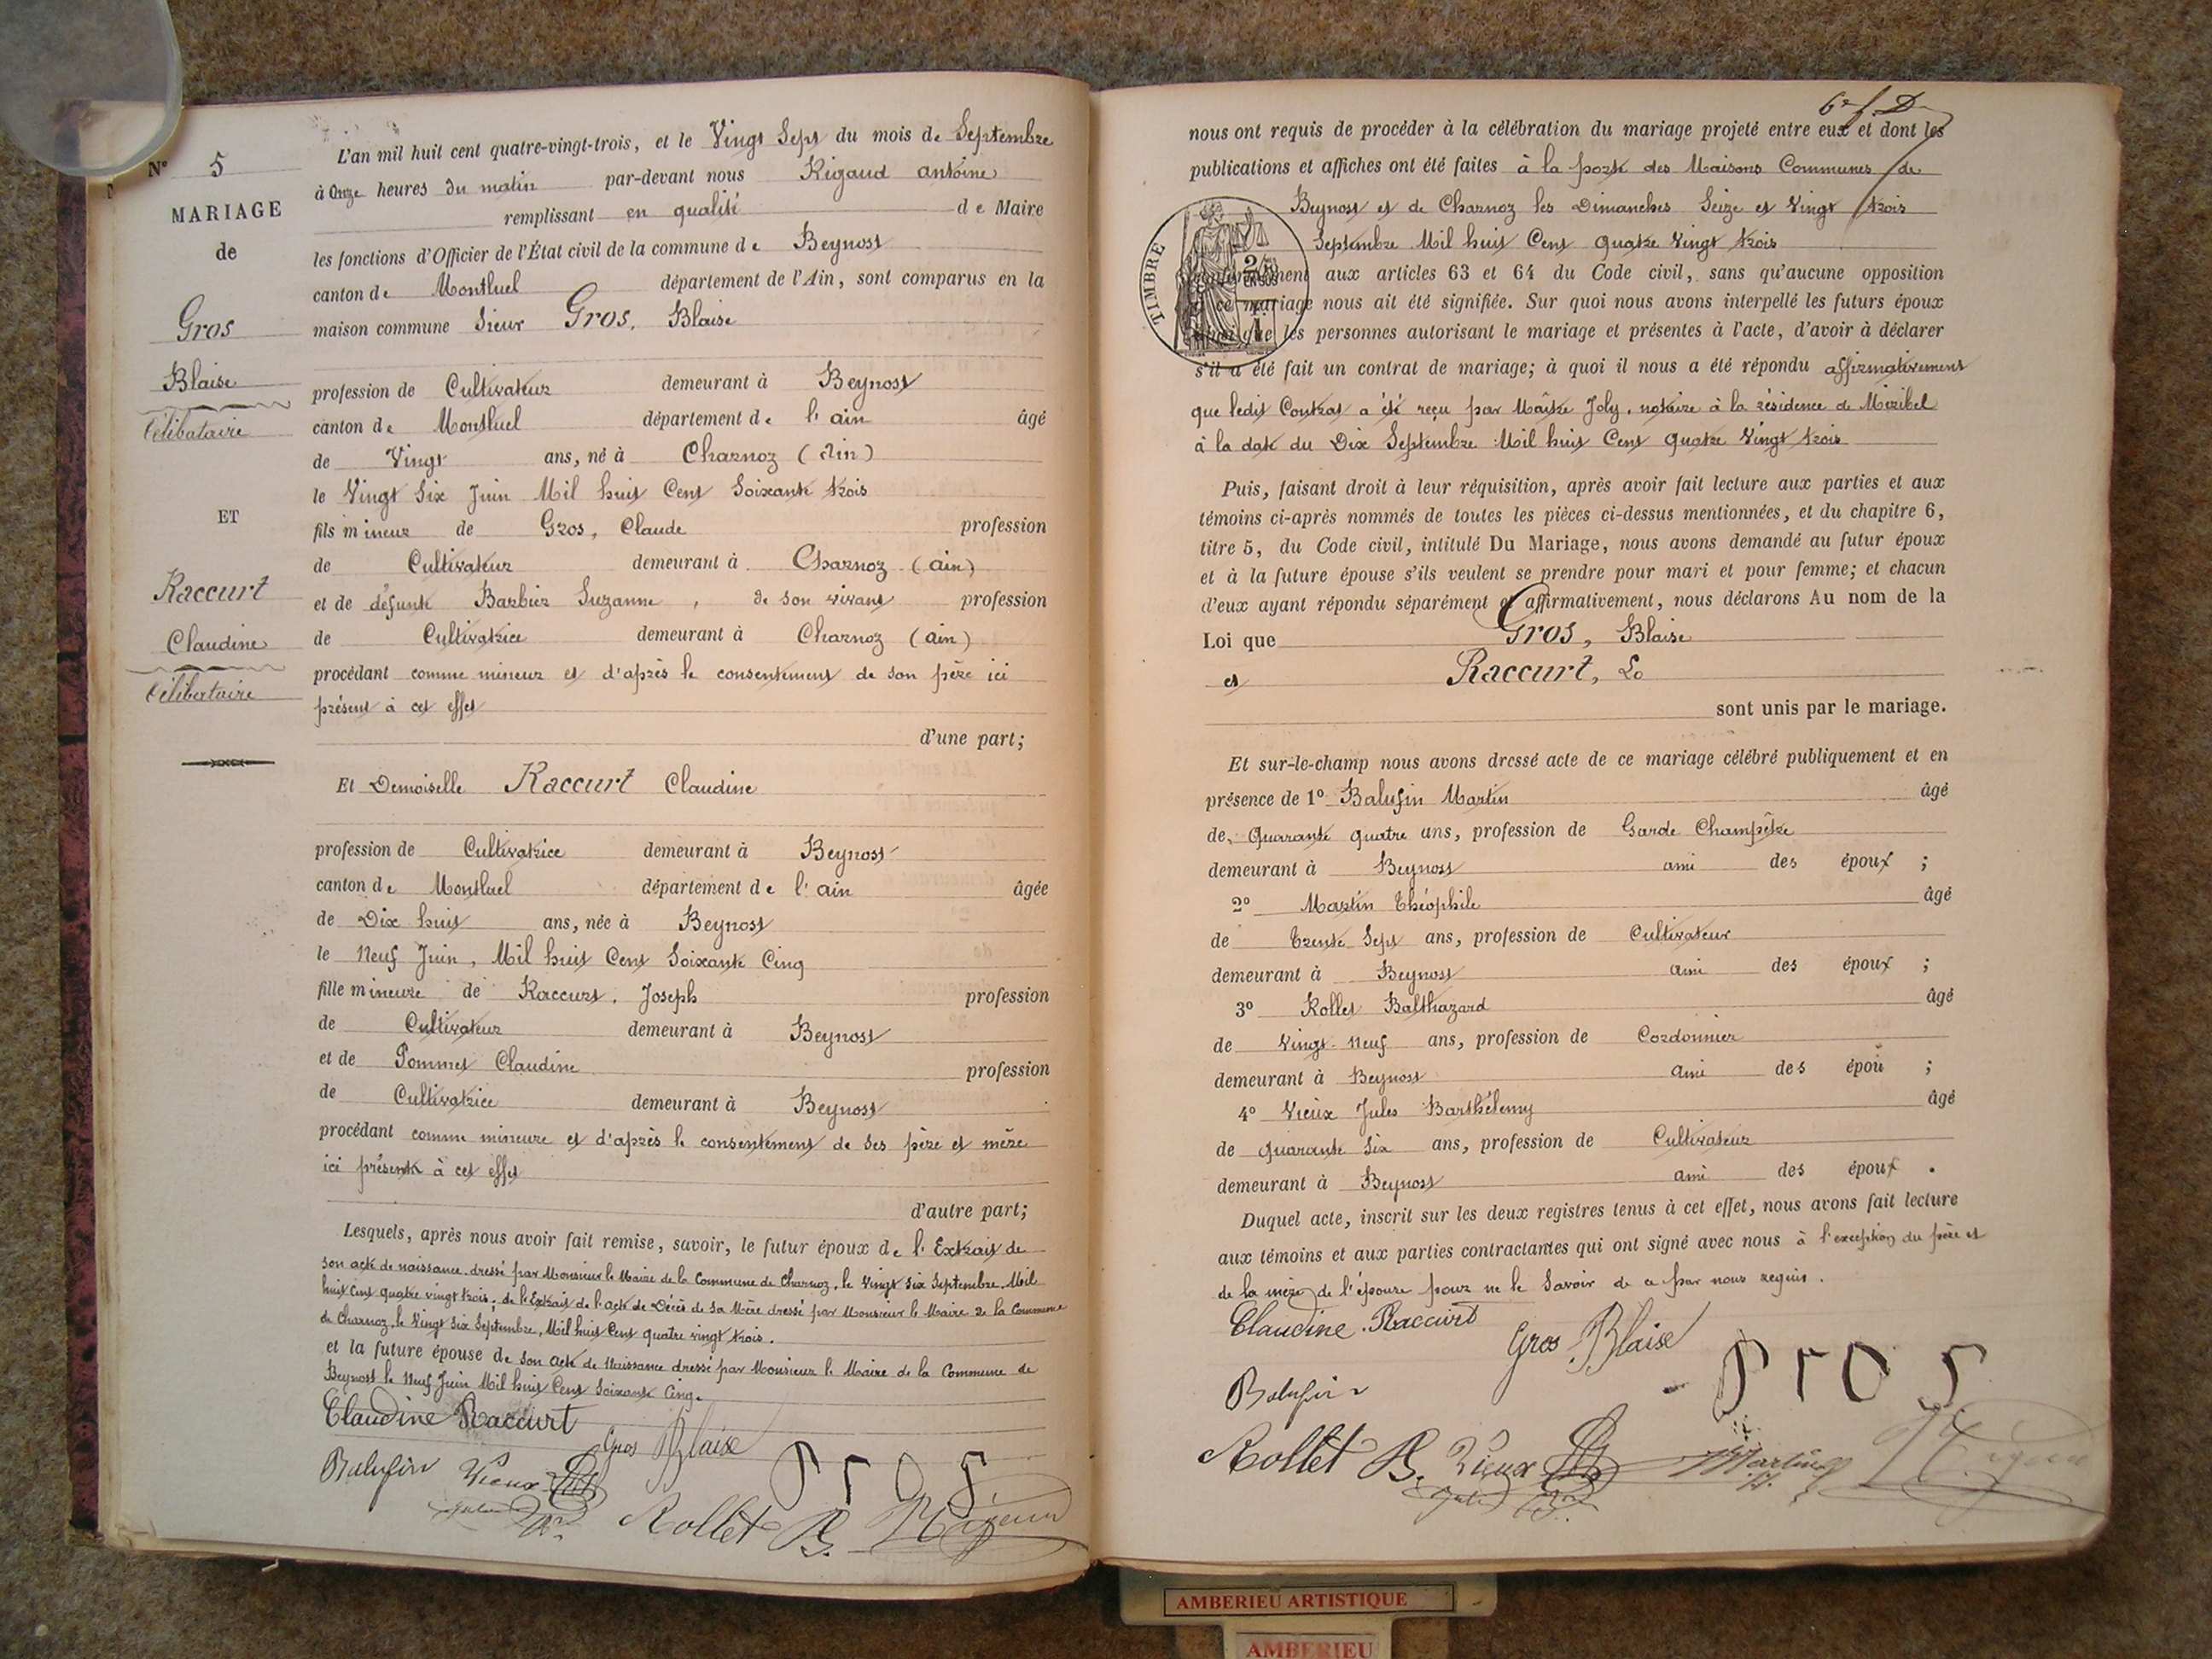 N° 5
MARIAGE
de
Gros
Blaise
Célibataire
ET
Raccurt
Claudine
Célibataire
L'an mil huit cent quatre-vingt-trois, et le Vingt Sept du mois de Septembre
à Onze heures du matin par-devant nous Rigaud antoine
remplissant en qualité de Maire
les fonctions d'Officier de l'État civil de la commune de Beynost
canton de Montluel département de l'Ain, sont comparus en la
maison commune Sieur Gros, Blaise
profession de Cultivateur demeurant à Beynost
canton de Montluel département de l'ain âgé
de Vingt ans, né à Charnoz (Ain)
le Vingt Six Juin Mil huit Cent Soixante trois
fils mineur de Gros, Claude profession
de Cultivateur demeurant à Charnoz (ain)
et de défunte Barbier Suzanne, de son vivant profession
de Cultivatrice demeurant à Charnoz (ain)
procédant comme mineur et d'après le consentement de son père ici
présent à cet effet
d'une part;
Et Demoiselle Raccurt Claudine
profession de Cultivatrice demeurant à Beynost
canton de Montluel département de l'ain âgée
de Dix huit ans, née à Beynost
le Neuf Juin, Mil huit Cent Soixante Cinq
fille mineure de Raccurt, Joseph profession
de Cultivateur demeurant à Beynost
et de Pommet Claudine profession
de Cultivatrice demeurant à Beynost
procédant comme mineure et d'après le consentement de ses père et mère
ici présents à cet effet
d'autre part;
Lesquels, après nous avoir fait remise, savoir, le futur époux de l'Extrait de
son acte de naissance dressé par Monsieur le Maire de la Commune de Charnoz, le Vingt Six Septembre Mil
huit Cent quatre vingt trois; de l'Extrait de l'acte de Décès de Sa Mère dressé par Monsieur le Maire de la Commune
de Charnoz, le Vingt Six Septembre, Mil huit Cent quatre vingt trois.
et la future épouse de Son acte de Naissance dressé par Monsieur le Maire de la Commune de
Beynost le Neuf Juin Mil huit Cent Soixante Cinq.
Claudine Raccurt
Gros Blaise
Balufin Vieux gros
Jules
Rollet B. Rigaud
6e f. D
nous ont requis de procéder à la célébration du mariage projeté entre eux et dont les
publications et affiches ont été faites à la porte des Maisons Communes de
Beynost et de Charnoz les Dimanches Seize et Vingt trois
Septembre Mil huit Cent quatre Vingt trois
TIMBRE
conformément aux articles 63 et 64 du Code civil, sans qu'aucune opposition
à ce mariage nous ait été signifiée. Sur quoi nous avons interpellé les futurs époux
ainsi que les personnes autorisant le mariage et présentes à l'acte, d'avoir à déclarer
s'il a été fait un contrat de mariage; à quoi il nous a été répondu affirmativement
que ledit Contrat a été reçu par Maître Joly, notaire à la résidence de Miribel
à la date du Dix Septembre Mil huit Cent quatre Vingt trois
Puis, faisant droit à leur réquisition, après avoir fait lecture aux parties et aux
témoins ci-après nommés de toutes les pièces ci-dessus mentionnées, et du chapitre 6,
titre 5, du Code civil, intitulé Du Mariage, nous avons demandé au futur époux
et à la future épouse s'ils veulent se prendre pour mari et pour femme; et chacun
d'eux ayant répondu séparément et affirmativement, nous déclarons Au nom de la
Loi que Gros, Blaise
et Raccurt,
sont unis par le mariage.
Et sur-le-champ nous avons dressé acte de ce mariage célébré publiquement et en
présence de 1° Balufin Martin âgé
de Quarante quatre ans, profession de Garde Champêtre
demeurant à Beynost ami des époux ;
2° Martin Théophile âgé
de trente Sept ans, profession de Cultivateur
demeurant à Beynost ami des époux ;
3° Rollet Balthazard âgé
de Vingt-neuf ans, profession de Cordonnier
demeurant à Beynost ami des époux ;
4° Vieux Jules Barthélemy âgé
de quarante Six ans, profession de Cultivateur
demeurant à Beynost ami des époux .
Duquel acte, inscrit sur les deux registres tenus à cet effet, nous avons fait lecture
aux témoins et aux parties contractantes qui ont signé avec nous à l'exception du père et
de la mère de l'épouse pour ne le Savoir de ce par nous requis.
Claudine Raccurt
Gros Blaise
gros
Balufin
Rollet B. Vieux Martin Rigaud
Jules
AMBERIEU ARTISTIQUE
AMBERIEU